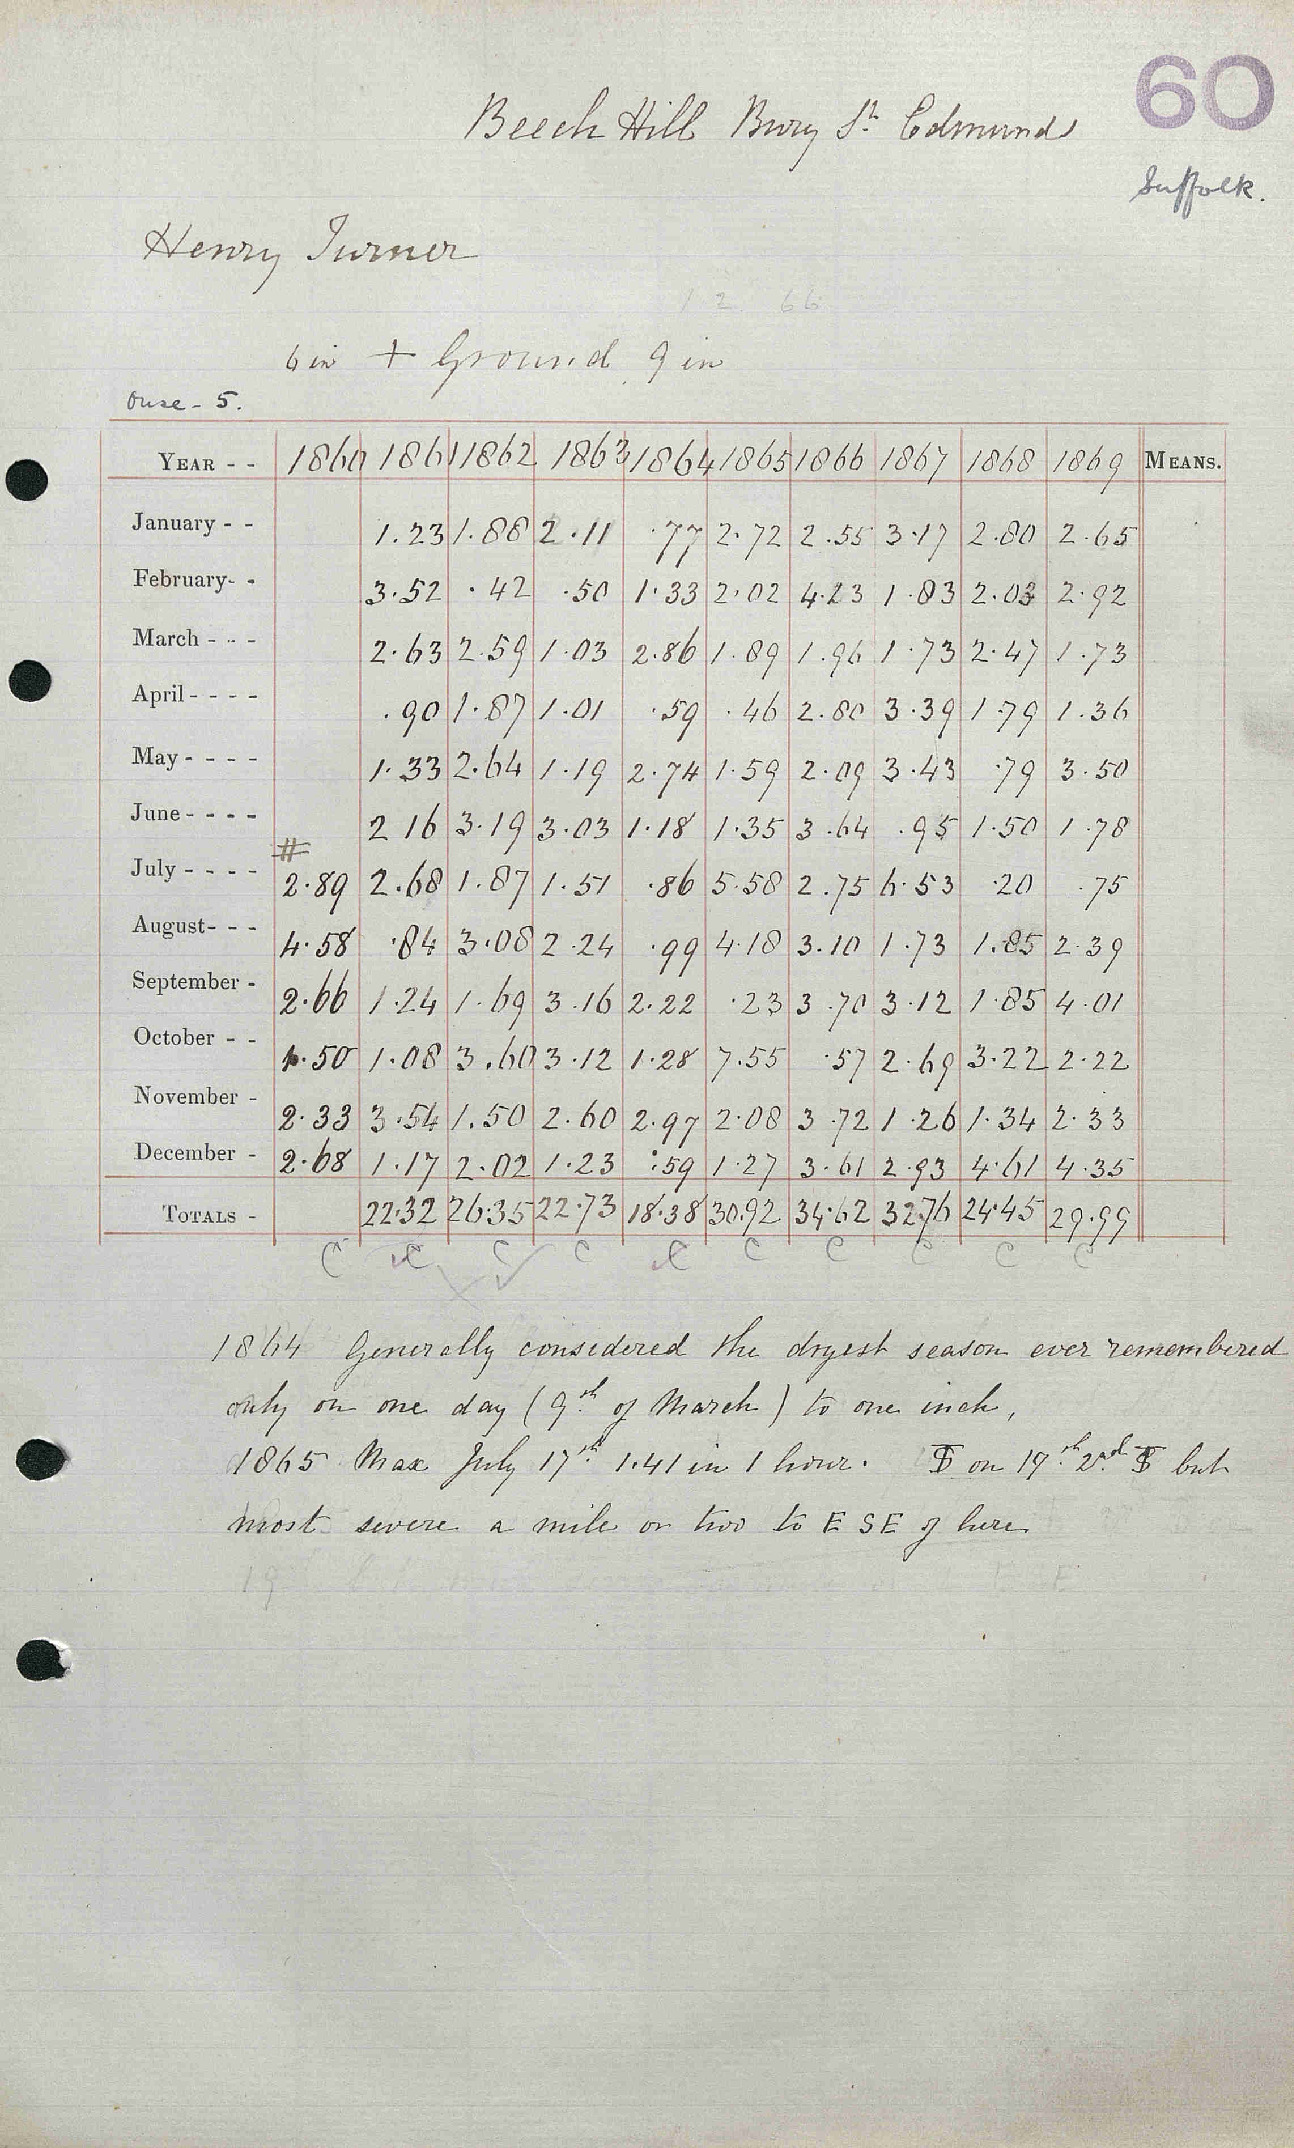 60
Beech Hill Bury St. Edmunds
Suffolk.
Henry Turner
12 66
6 in + Ground 9 in
Ouse - 5.
YEAR - - 1860 1861 1862 1863 1864 1865 1866 1867 1868 1869 MEANS.
January - - 1.23 1.88 2.11 .77 2.72 2.55 3.17 2.80 2.65
February- - 3.52 .42 .50 1.33 2.02 4.23 1.83 2.03 2.92
March - - - 2.63 2.59 1.03 2.86 1.89 1.96 1.73 2.47 1.73
April - - - - .90 1.87 1.01 .59 .46 2.80 3.39 1.79 1.36
May - - - - 1.33 2.64 1.19 2.74 1.59 2.09 3.43 .79 3.50
June - - - - 2 16 3.19 3.03 1.18 1.35 3.64 .95 1.50 1.78
#
July - - - - 2.89 2.68 1.87 1.51 .86 5.58 2.75 6.53 .20 .75
August- - - 4.58 .84 3.08 2.24 .99 4.18 3.10 1.73 1.85 2.39
September - 2.66 1.24 1.69 3.16 2.22 .23 3.70 3.12 1.85 4.01
October - - 1.50 1.08 3.60 3.12 1.28 7.55 .57 2.69 3.22 2.22
November - 2.33 3.54 1.50 2.60 2.97 2.08 3.72 1.26 1.34 2.33
December - 2.68 1.17 2.02 1.23 .59 1.27 3.61 2.93 4.61 4.35
TOTALS - 22.32 26.35 22.73 18.38 30.92 34.62 32.76 24.45 29.99
C C C C C C C C C C
1864 Generally considered the dryest season ever remembered
only on one day (9th of March) to one inch,
1865 Max July 17th 1.41 in 1 hour. on 19th 2nd but
most severe a mile or two to E SE of here